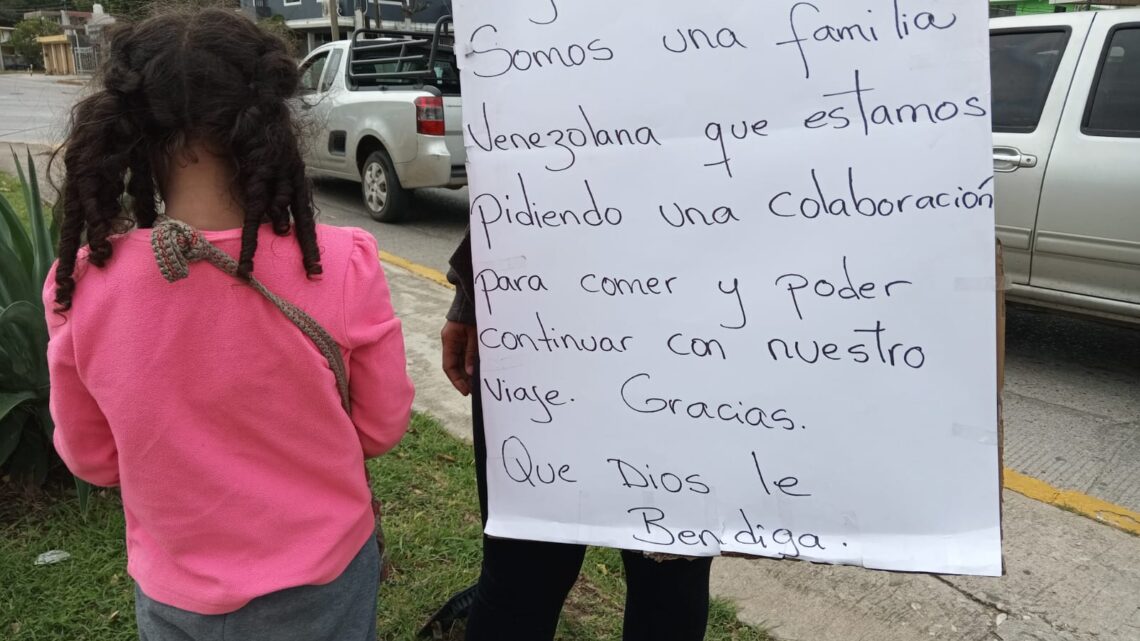 Somos una familia
Venezolana que estamos
pidiendo una colaboración
para comer y poder
continuar con nuestro
viaje. Gracias.
Que Dios le
Bendiga.